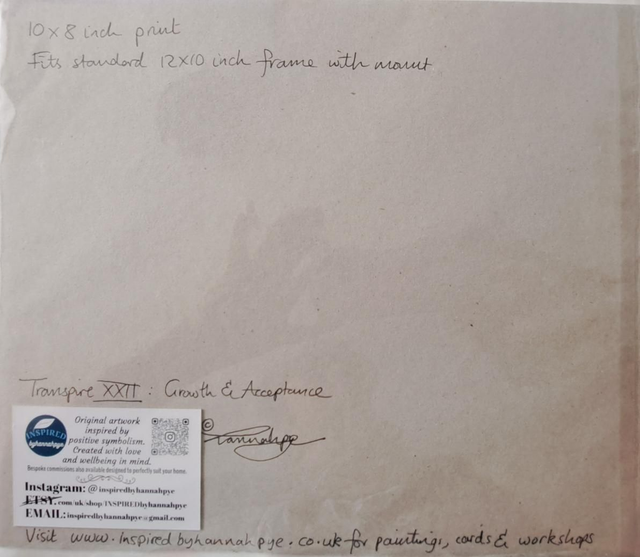 10x8 inch print
Fits standard 12x10 inch frame with mount
Transpire XXII : Growth & Acceptance
© Hannahpye
INSPIRED
byhannahpye
Original artwork
inspired by
positive symbolism.
Created with love
and wellbeing in mind.
Bespoke commissions also available designed to perfectly suit your home.
Instagram: @inspiredbyhannahpye
ETSY.com/uk/shop/INSPIREDbyhannahpye
EMAIL: inspiredbyhannahpye@gmail.com
Visit www.inspiredbyhannahpye.co.uk for paintings, cards & workshops